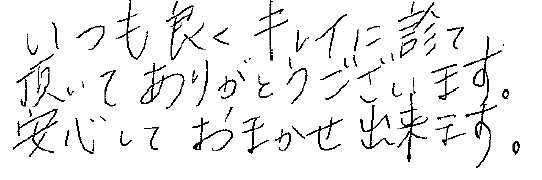 いつも良くキレイに診て
頂いてありがとうございます。
安心しておまかせ出来ます。